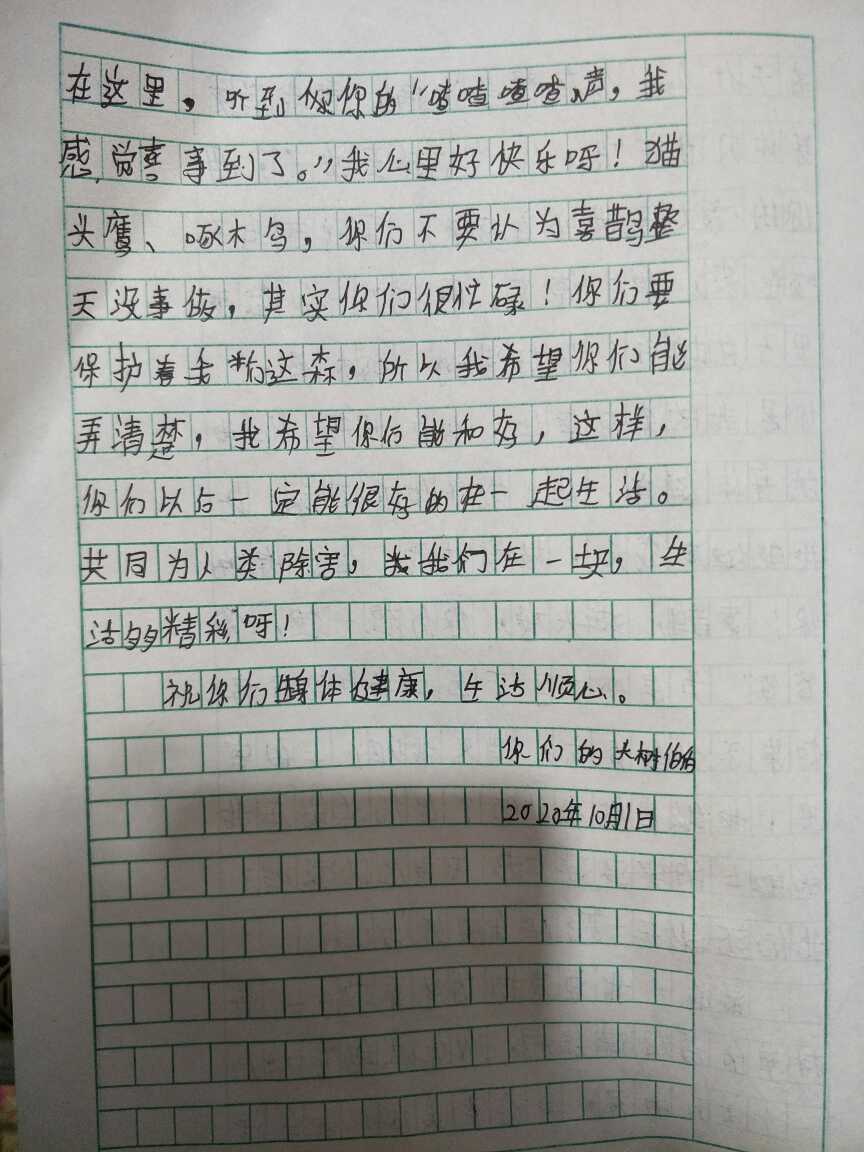 在这里，听到你的“喳喳喳喳声，我
感觉喜事到了。”我心里好快乐呀！猫
头鹰、啄木鸟，你们不要认为喜鹊整
天没事做，其实你们很忙碌！你们要
保护着我的这森，所以我希望你们能
弄清楚，我希望你们能和好，这样，
你们以后一定能很好的在一起生活。
共同为人类除害，我们在一起，生
活多精彩呀！
祝你们身体健康，生活顺心。
你们的大树伯伯
2020年10月1日